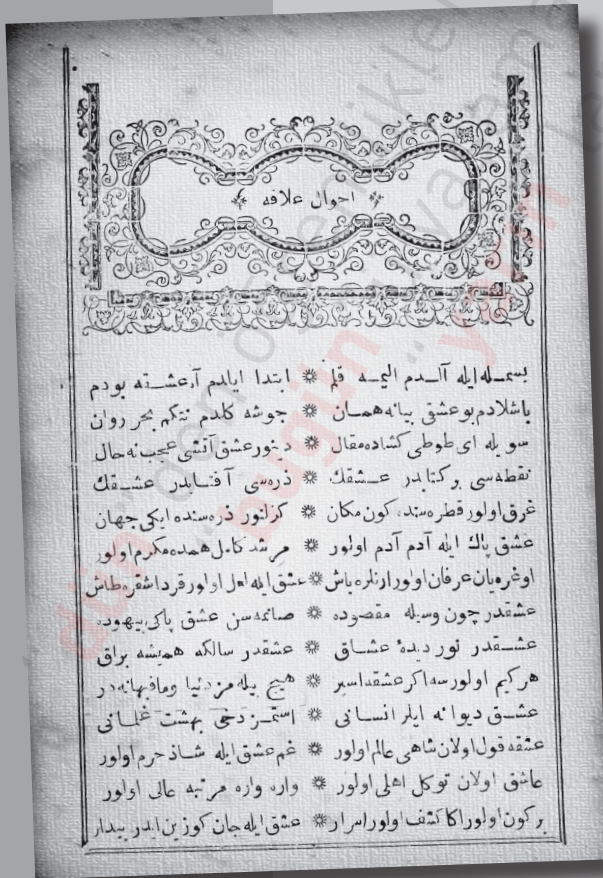 احوال علاقه
بسمله ايله آلدم اليمه قلم ❋ ابتدا ايلدم آ عشقه بودم
باشلادم بو عشقى بيانه همان ❋ جوشه كلدم نتكم بحر روان
سويله اى طوطى كشاده مقال ❋ د نور عشق آتشى عجب نه حال
نقطه سى بر كتابدر عشقك ❋ ذره سى آفتابدر عشقك
غرق اولور قطره سنده كون مكان ❋ كزلنور ذره سنده ايكى جهان
عشق پاك ايله آدم آدم اولور ❋ مرشد كامل همده مكرم اولور
اوغره يان عرفان اولور ارنلره باش ❋ عشق ايله لعل اولور قرداشقره طاش
عشقدر چون وسيله مقصوده ❋ صانمه سن عشق پاكى بيهوده
عشقدر نور ديدهٔ عشاق ❋ عشقدر سالكه هميشه براق
هركيم اولور سه اكر عشقه اسير ❋ هيچ بيله مز دنيا ومافيها نه در
عشق ديوانه ايلر انسانى ❋ استمز دخى بهشت غلمانى
عشقه قول اولان شاهى عالم اولور ❋ غم عشق ايله شاذ خرم اولور
عاشق اولان توكل اهلى اولور ❋ واره واره مرتبه عالى اولور
بر كون اولور اكا كشف اولور اسرار ❋ عشق ايله جان كوزين ايدر بيدار
dün
bugün
yarın